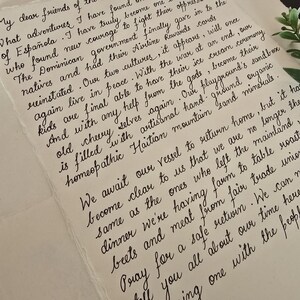 My dear friends of the
What adventures I have found
of Española. I have truly become one
who found new courage to fight their oppressors
The Dominican government finally gave in to the
natives and had their Airline Rewards cards
reinstated. Our two cultures, it appears, will once
again live in peace. With the war at an end, our
kids are final able to have their ice cream privacy
And with any help from the gods, become their
old cheery selves again. Our playground's sandbox
is filled with artisanal hand ground, organic
homeopathic Haitian mountain sand minerals.
We await our vessel to return home but it ha
become clear to us that we are no longer th
same as the ones who left the mainland
dinner we're having farm to table roas
beets and meat from fair trade unic
Pray for a safe return. We can no
tell you all about our time here
being one with the peop